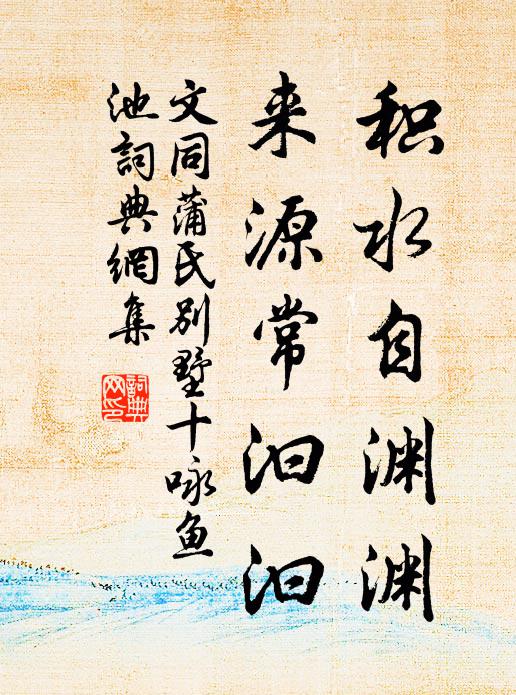 积水自渊渊
来源常汩汩
文同蒲氏别墅十咏鱼
池词典網集
詞典网印